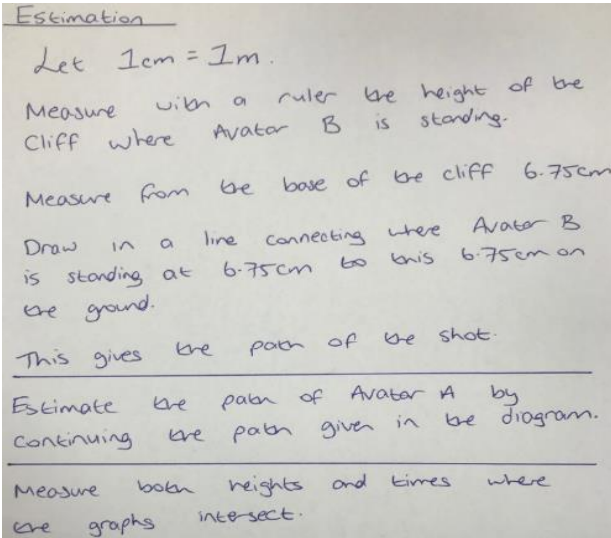 Estimation
Let 1cm = 1m.
Measure with a ruler the height of the
Cliff where Avatar B is standing.
Measure from the base of the cliff 6.75cm
Draw in a line connecting where Avatar B
is standing at 6.75cm to this 6.75cm on
the ground.
This gives the path of the shot.
Estimate the path of Avatar A by
continuing the path given in the diagram.
Measure both heights and times where
the graphs intersect.